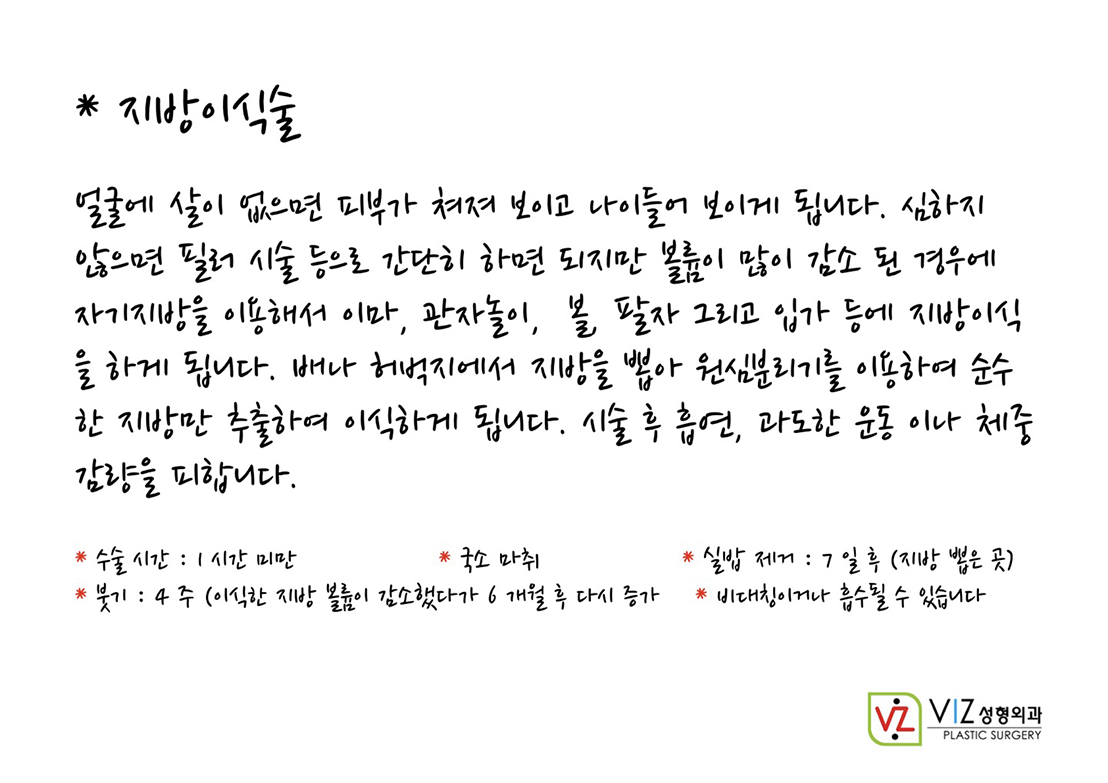 * 지방이식술
얼굴에 살이 없으면 피부가 쳐져 보이고 나이들어 보이게 됩니다. 심하지
않으면 필러 시술 등으로 간단히 하면 되지만 볼륨이 많이 감소 된 경우에
자기지방을 이용해서 이마, 관자놀이, 볼, 팔자 그리고 입가 등에 지방이식
을 하게 됩니다. 배나 허벅지에서 지방을 뽑아 원심분리기를 이용하여 순수
한 지방만 추출하여 이식하게 됩니다. 시술 후 흡연, 과도한 운동 이나 체중
감량을 피합니다.
* 수술 시간 : 1 시간 미만 * 국소 마취 * 실밥 제거 : 7 일 후 (지방 뽑은 곳)
* 붓기 : 4 주 (이식한 지방 볼륨이 감소했다가 6 개월 후 다시 증가 * 비대칭이거나 흡수될 수 있습니다
VZ VIZ성형외과
PLASTIC SURGERY